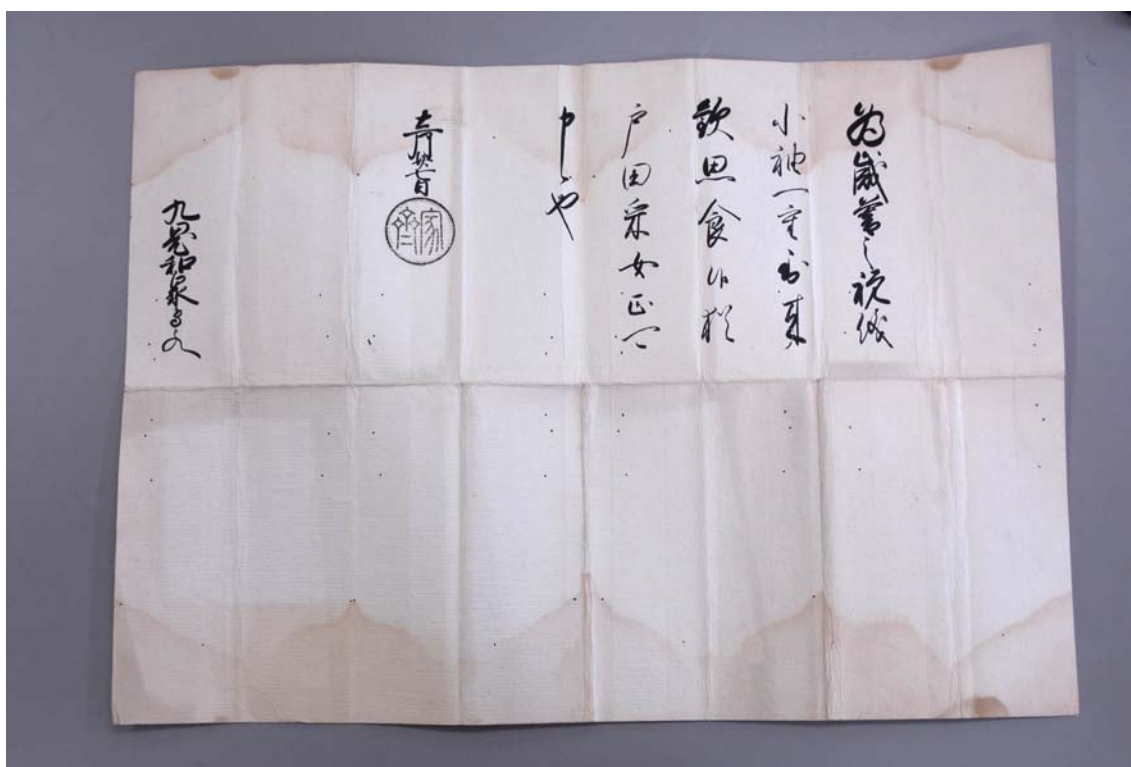 為歳暮之祝儀
小袖一重到来
歓思食候猶
戸田采女正可
申也
十二月廿七日
家斉
九鬼和泉守とのへ